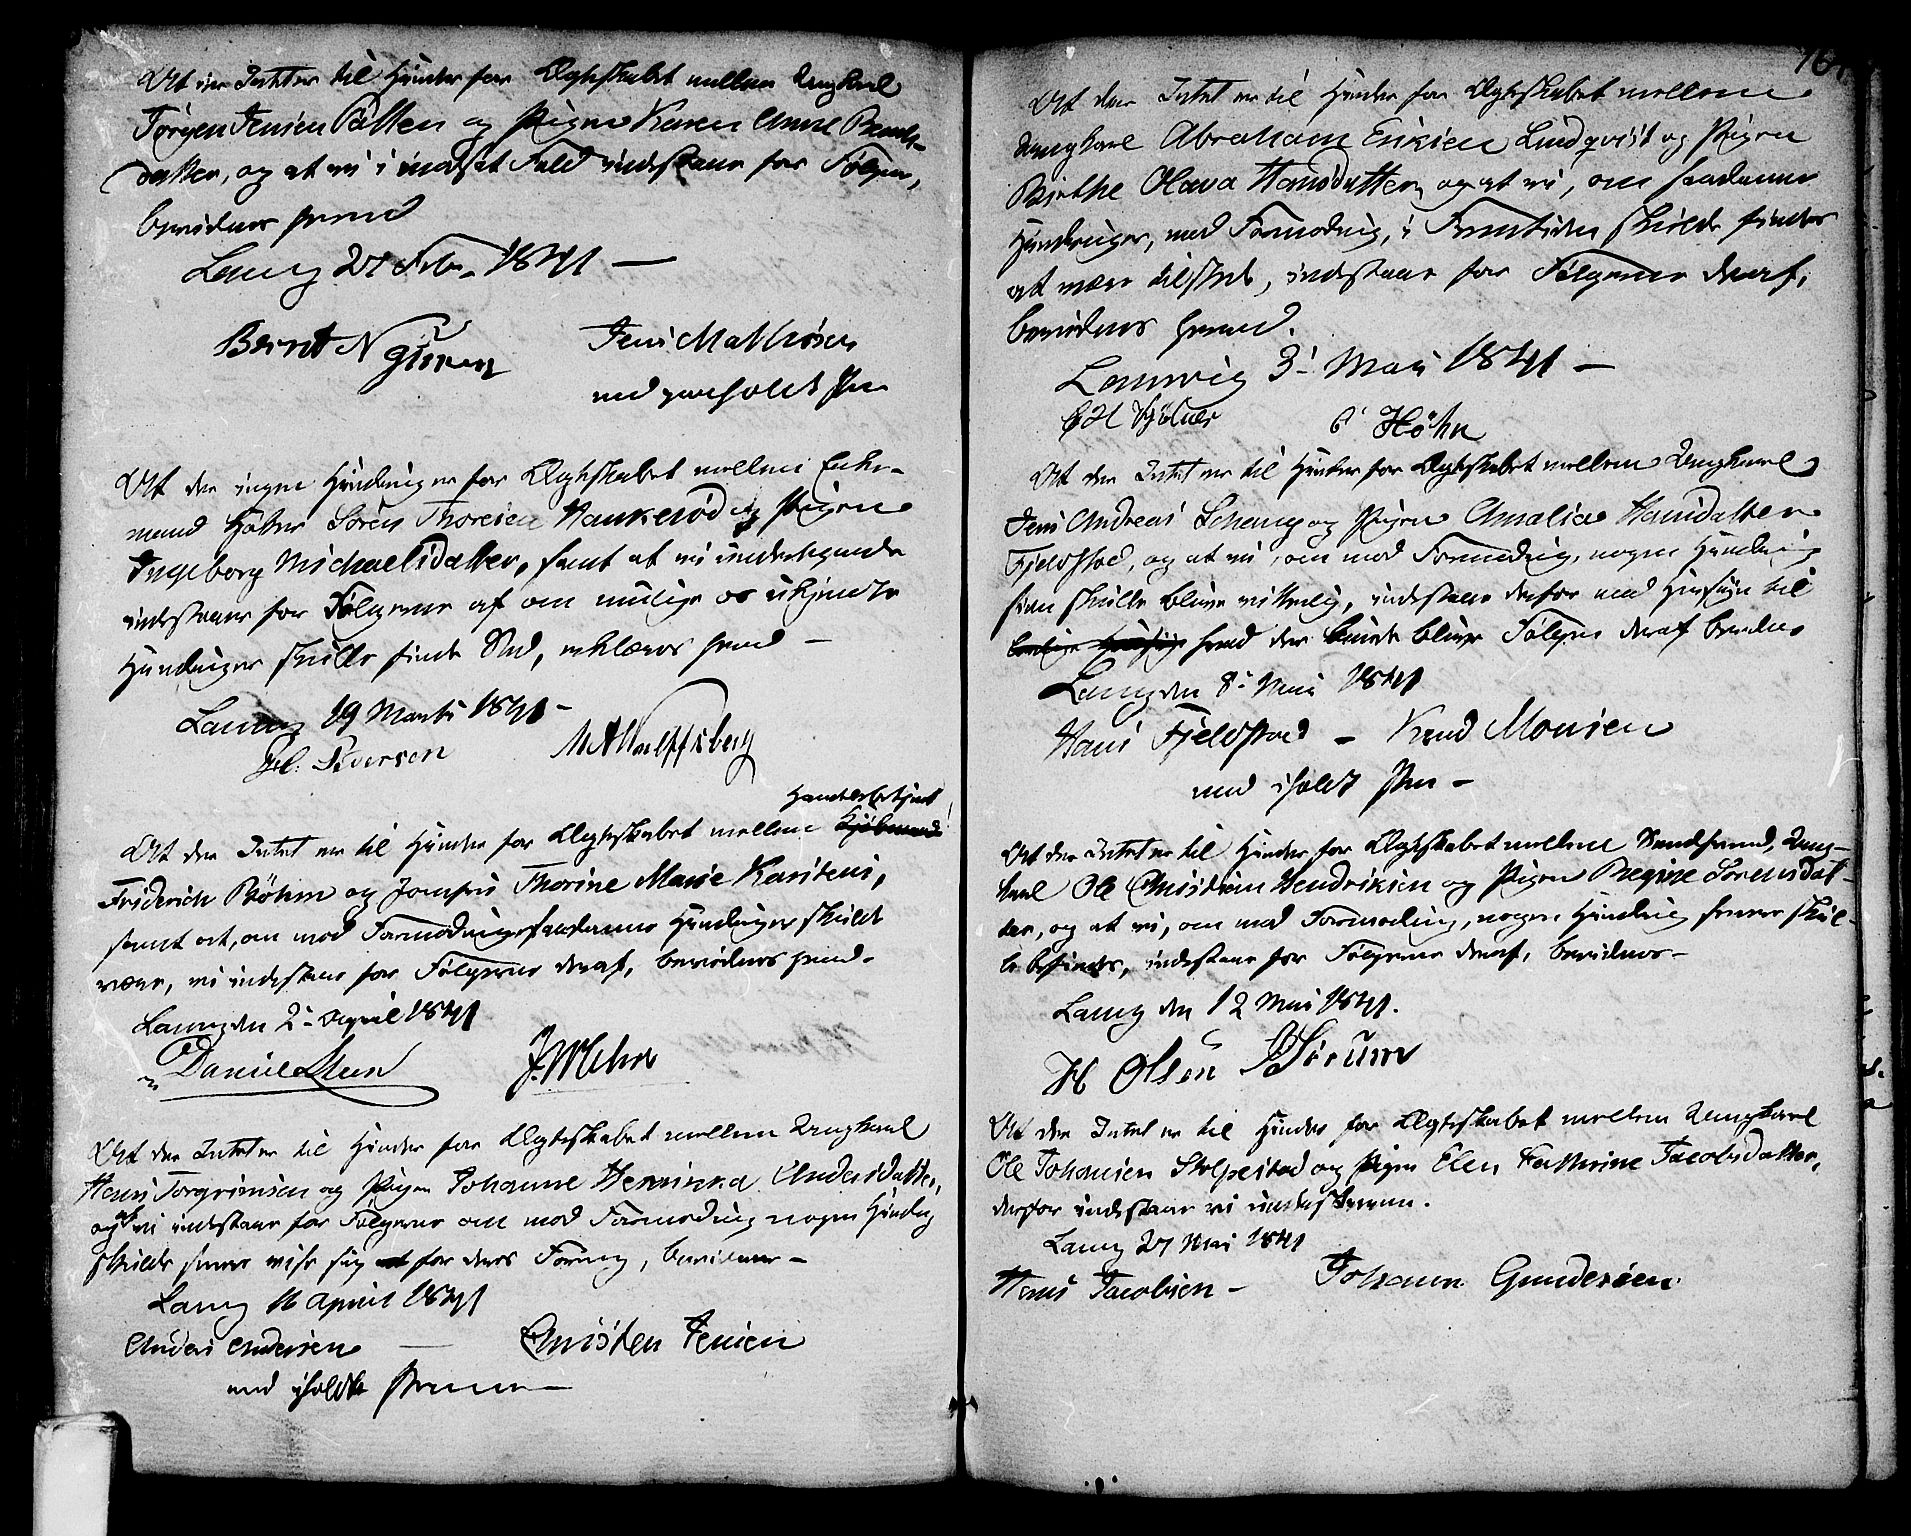 At der Intet er til Hinder for Ægteskabet mellem Ungkarl
Jørgen Jensen Patten og Pigen Karen Anne Bernts-
datter, og at vi i modsat Fald indestaae for Følgerne,
bevidnes herved
Laurvig 27 Febr. 1841 —
Bernt N Jens Mathisen
med paaholdt Pen
At der ingen Hindringer for Ægteskabet mellem Enke-
mand Søren Thoresen Haukerød og Pigen
Ingeborg Michaelsdatter, samt at vi undertegnede
indestaaer for Følgerne af om mulige os ukjendte
Hindringer skulle finde Sted, erklæres herved —
Laurvig 19 Marts 1841 —
Iversen
At der Intet er til Hinder for Ægteskabet mellem Handelsbetjent
Friderich Bøhm og Jomfru Thorine Marie Karstens,
samt at, om mod Formodning saadanne Hindringer skulde
være, vi indestaae for Følgerne deraf, bevidnes herved.
Laurvig den 2 April 1841
Daniel Steen
At der Intet er til Hinder for Ægteskabet mellem Ungkarl
Hans Torgrimsen og Pigen Johanne Henrikka Andersdatter,
og at vi indestaae for Følgerne om mod Formodning nogen Hindring
skulde senere vise sig for deres Forening, bevidner —
Laurvig 16 April 1841
Anders Andersen — Christen Jensen
med iholdte Penne —
161
At der Intet er til Hinder for Ægteskabet mellem
Ungkarl Abraham Eriksen Lindqvist og Pigen
Birthe Olava Hansdatter, og at vi, om saadanne
Hindringer, mod Formodning, i Fremtiden skulde findes
at være tilstede, indestaae for Følgerne deraf,
bevidnes herved.
Laurvig 3 Mai 1841 —
Høhn
At der Intet er til Hinder for Ægteskabet mellem Ungkarl
Jens Andreas Schang og Pigen Amalia Hansdatter
Fjeldstad, og at vi, om mod Formodning, nogen Hindring
siden skulle blive vitterlig, indestaae derfor med Hensyn til
hvad der kunde blive Følgen deraf bevidnes
Laurvig den 8 Mai 1841
Hans Fjeldstad — Knud Monsen
med iholdt Pen —
At der Intet er til Hinder for Ægteskabet mellem Ung-
karl Ole Christian Hendriksen og Pigen Regine Sørensdat-
ter, og at vi, om mod Formodning, nogen Hindring senere skul-
le befindes, indestaae for Følgerne deraf, bevidnes —
Laurvig den 12 Mai 1841.
H Olsen Sørum
At der Intet er til Hinder for Ægteskabet mellem Ungkarl
Ole Johansen Stolpestad og Pigen Elen Kathrine Jacobsdatter,
derfor indestaae vi underskrevne.
Laurvig 27 Mai 1841
Hans Jacobsen — Johann Gundersen